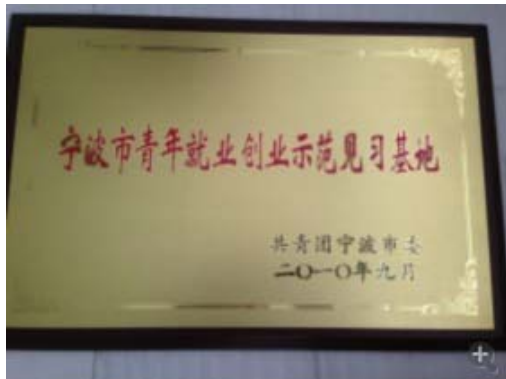 宁波市青年就业创业示范见习基地
共青团宁波市委
二〇一〇年九月